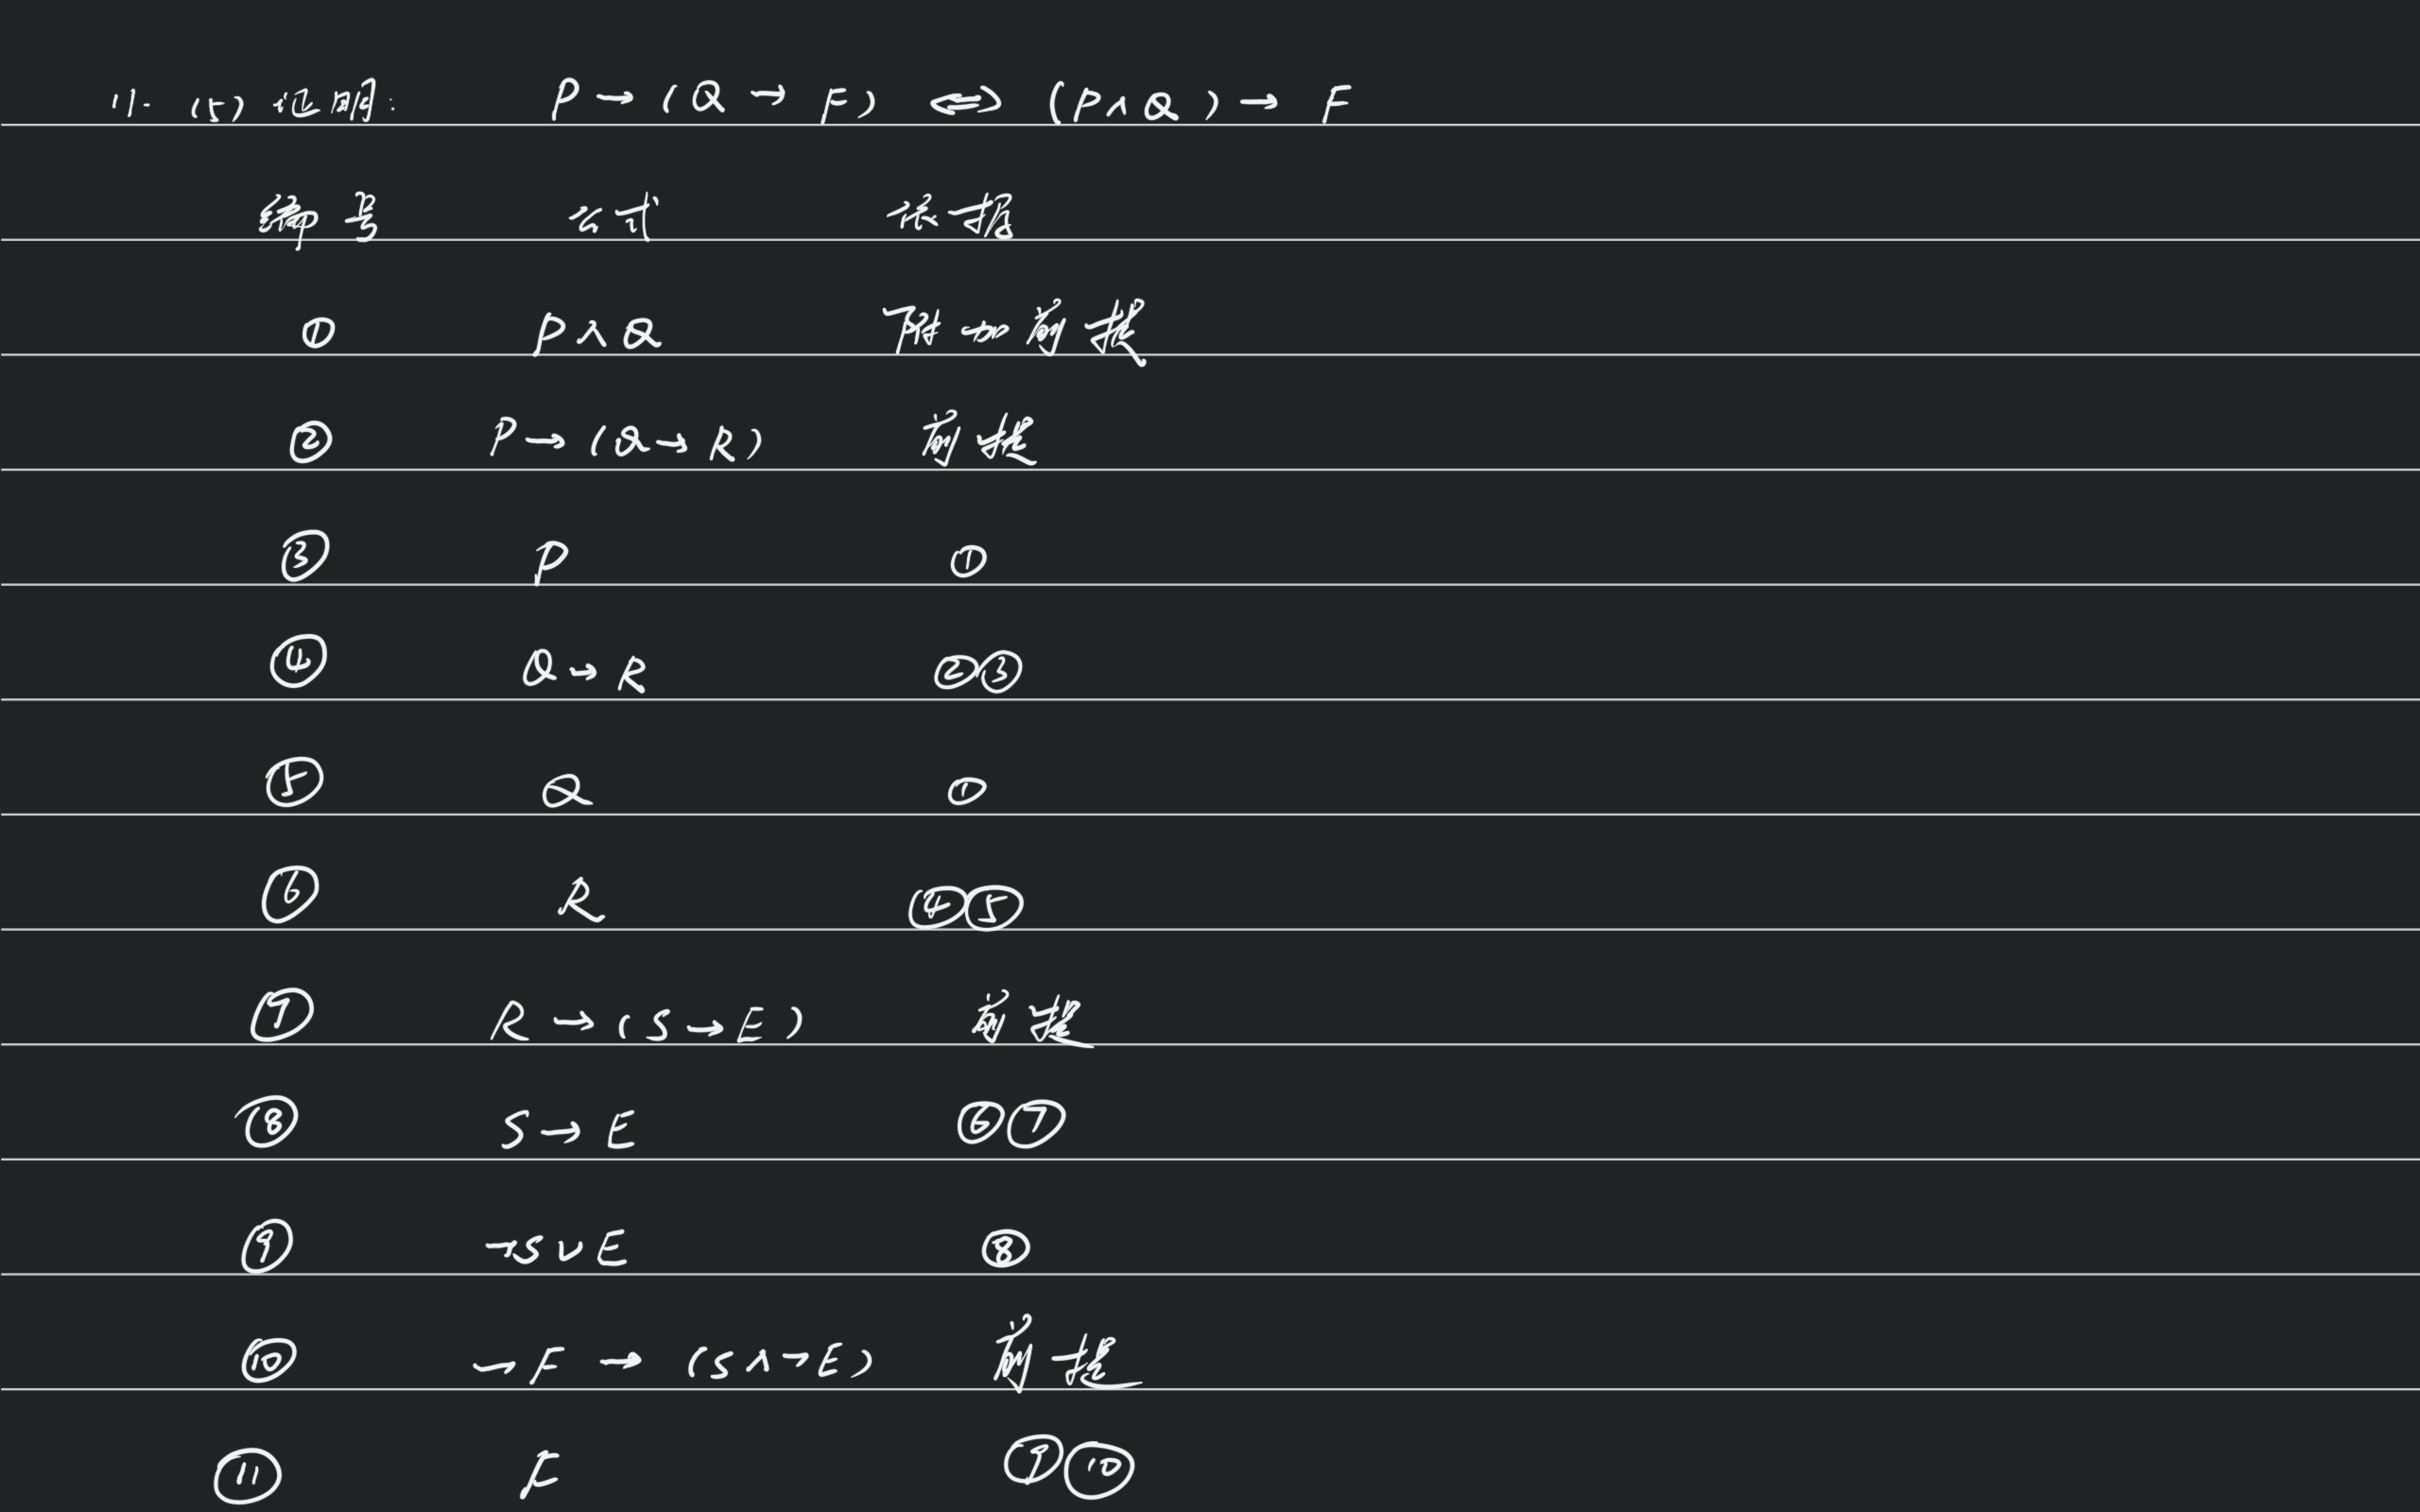 11. (5) 证明: P → (Q → F) ⇔ (P∧Q) → F
编号 公式 依据
① P∧Q 附加前提
② P→(Q→R) 前提
③ P ①
④ Q→R ②③
⑤ Q ①
⑥ R ④⑤
⑦ R→(S→E) 前提
⑧ S→E ⑥⑦
⑨ ¬S∨E ⑧
⑩ ¬F→(S∧¬E) 前提
⑪ F ⑨⑩